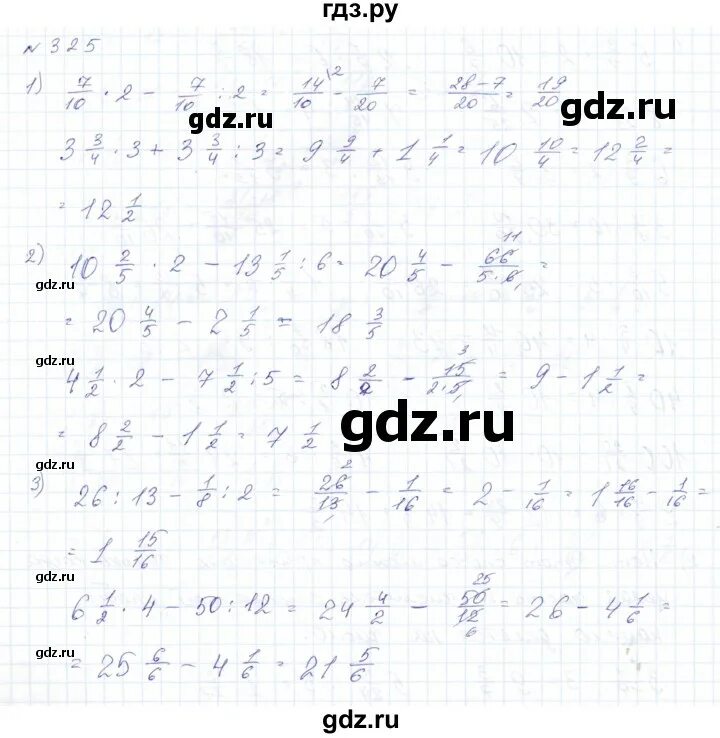 гдз.ру
№325
1) 7/10 · 2 - 7/10 : 2 = 14/10 |2 - 7/20 = 28-7/20 = 19/20
gdz.ru gdz.ru
3 3/4 · 3 + 3 3/4 : 3 = 9 9/4 + 1 1/4 = 10 10/4 = 12 2/4 =
= 12 1/2
2) 10 2/5 · 2 - 13 1/5 : 6 = 20 4/5 - 66 11/5·6 1 =
gdz.ru
= 20 4/5 - 2 1/5 = 18 3/5
gdz.ru
4 1/2 · 2 - 7 1/2 : 5 = 8 2/2 - 15 3/2·5 1 = 9 - 1 1/2 =
gdz.ru
= 8 2/2 - 1 1/2 = 7 1/2
gdz.ru
3) 26 : 13 - 1/8 : 2 = 26 2/13 1 - 1/16 = 2 - 1/16 = 1 16/16 - 1/16 =
= 1 15/16
gdz.ru
6 1/2 · 4 - 50 : 12 = 24 4/2 - 50 25/12 6 = 26 - 4 1/6 =
gdz.ru
= 25 6/6 - 4 1/6 = 21 5/6
gdz.ru